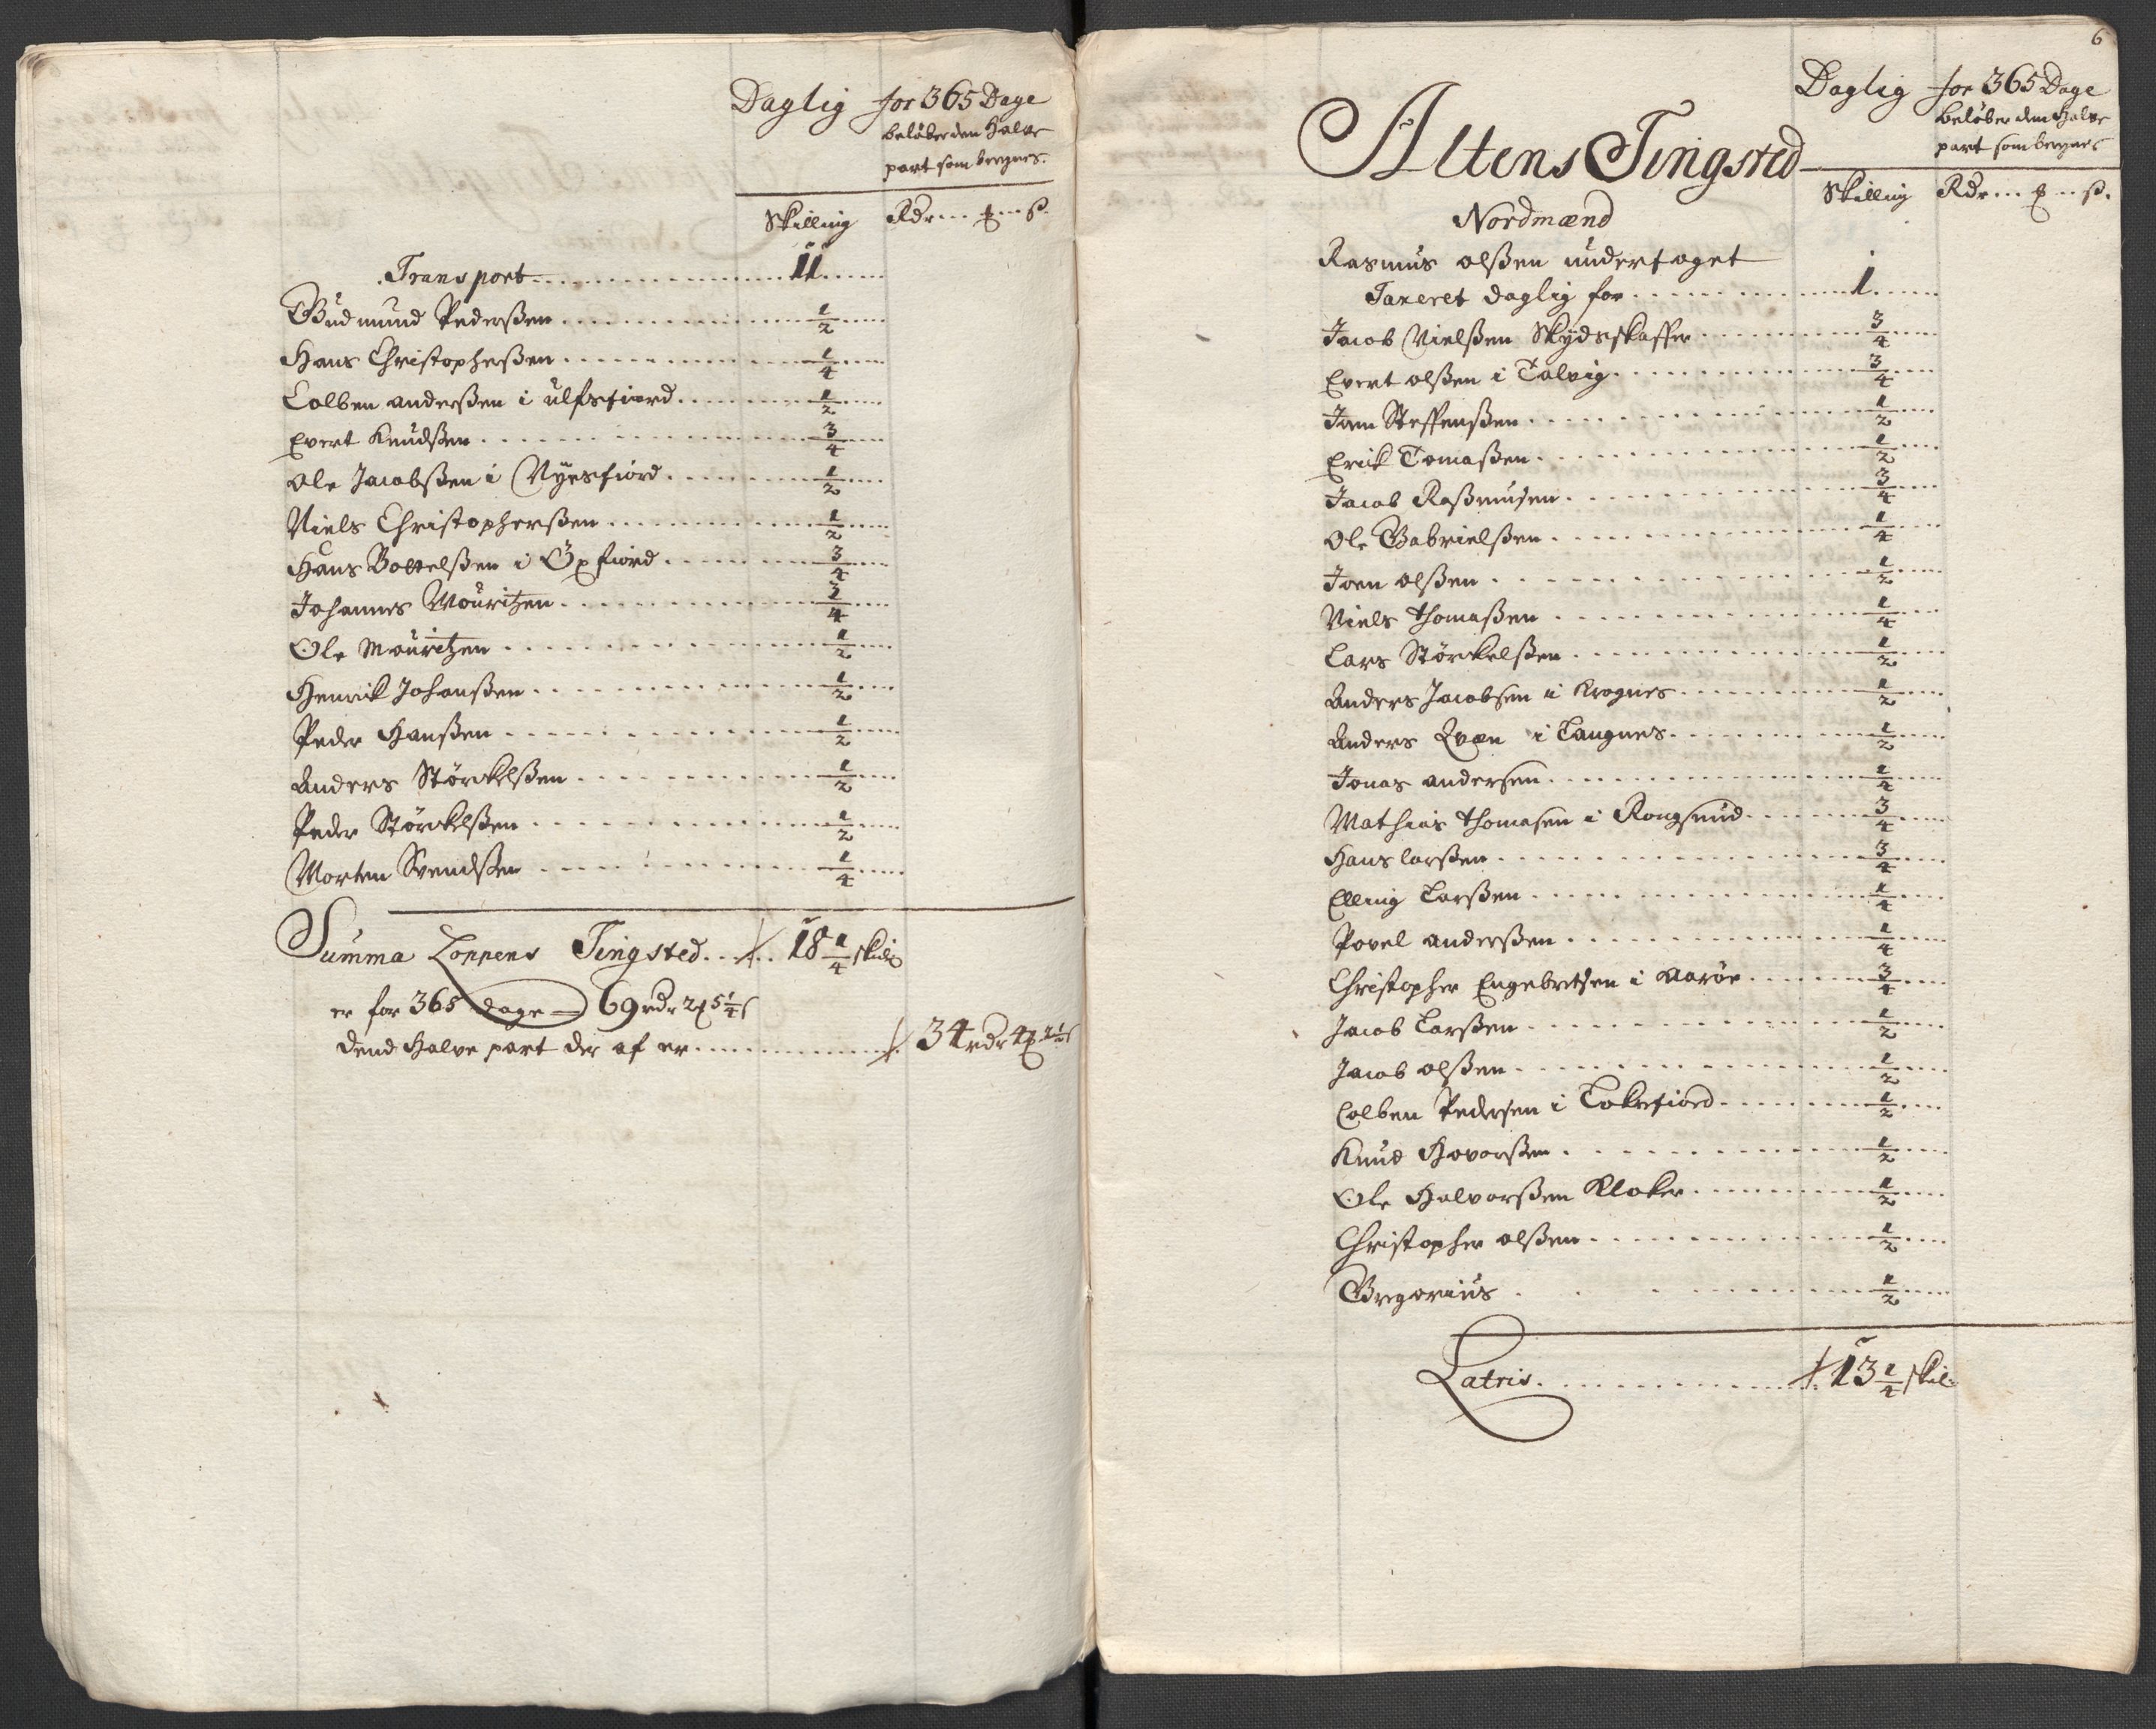 Daglig for 365 Dage
beløber den Halve
part som beregnes.
Skilling Rdr... ... ß.
Transport 11
Gudmund Pedersßen 1/2
Hans Christophesßen 1/4
Colben andersßen i ulfsfiord 1/2
Evert Knudsßen 3/4
Ole Jacobsßen i Nyesfiord 1/2
Niels Christophersßen 1/2
Hans Bottelsßen i Øxfiord 3/4
Johannes Mouritzen 3/4
Ole Mouritzen 1/2
Henrik Johansßen 1/2
Peder Hansßen 1/2
Anders Størckelsßen 1/2
Peder Størckelsßen 1/2
Morten Svendsßen 1/4
Summa Loppens Tingsted 18 1/4 skil
er for 365 dage 69 rdr 2 5 1/4 s
dend Halve part der af er 34 rdr 4
6
Daglig for 365 Dage
beløber den Halve
part som beregnes
Altens Tingsted
Skilling Rdr... ... ß.
Nordmænd
Rasmus olsßen undertaget
Taxeret daglig for 1
Jacob Nielsßen Skydsskaffer 3/4
Evert olsßen i Talvig 3/4
Joen Steffensßen 1/2
Erick Tomasßen 1/2
Jacob Rasßmusen 3/4
Ole Gabrielsßen 1/4
Joen olsßen 1/2
Niels Thomasßen 1/4
Lars Størckelsßen 1/2
Anders Jacobsen i Krognes 1/2
Anders Qvæn i Langnes 1/2
Jonas andersen 1/4
Mathias Thomasen i Rongsund 3/4
Hans larsßen 3/4
Elling Larsßen 1/4
Povel andersßen 1/4
Christopher Engebretsen i Aarøe 3/4
Jacob Larsßen 1/2
Jacob olsßen 1/2
Colben Pedersen i Cokefiord 1/2
Knud Hovorsßen 1/2
Ole Halvorsßen Kloker 1/2
Christopher olsßen 1/2
Gregorius 1/2
Latris 13 1/4 skil